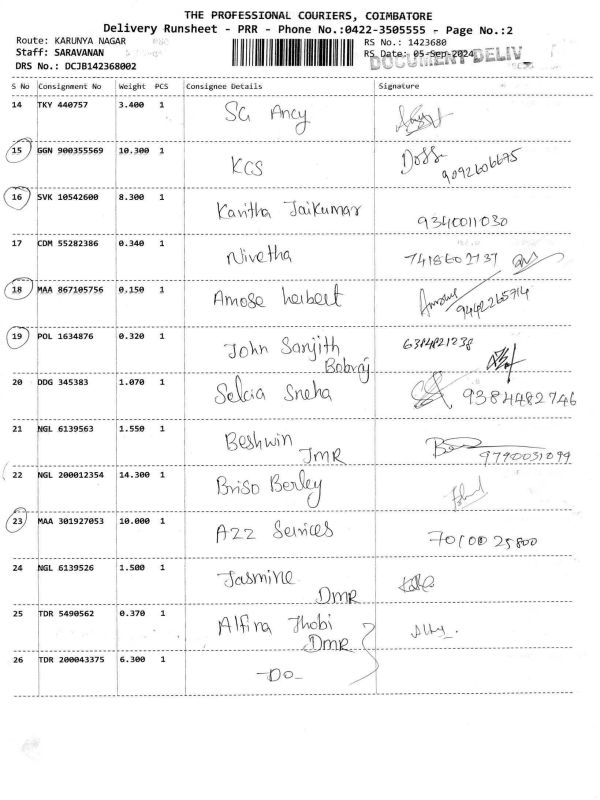 THE PROFESSIONAL COURIERS, COIMBATORE
Delivery Runsheet - PRR - Phone No.:0422-3505555 - Page No.:2
Route: KARUNYA NAGAR RS No.: 1423680
Staff: SARAVANAN RS Date: 05-Sep-2024
DOCUMENT DELIV
DRS No.: DCJB142368002
S No Consignment No Weight PCS Consignee Details Signature
14 TKY 440757 3.400 1 SG Ancy
15 GGN 900355569 10.300 1 KCS
9092606675
16 SVK 10542600 8.300 1 Kavitha Jaikumar
9340011030
17 CDM 55282386 0.340 1 Nivetha 7418602737
18 MAA 867105756 0.150 1 Amose herbert
9442265714
19 POL 1634876 0.320 1 John Sanjith 6384821238
Bobraj
20 DDG 345383 1.070 1 Selcia Sneha 9384482746
21 NGL 6139563 1.550 1 Beshwin
JMR 9790031099
22 NGL 200012354 14.300 1 Briso Berley
23 MAA 301927053 10.000 1 A2Z Services 7010025800
24 NGL 6139526 1.500 1 Jasmine
DMR
25 TDR 5490562 0.370 1 Alfina Jhobi
DMR
26 TDR 200043375 6.300 1 -Do-